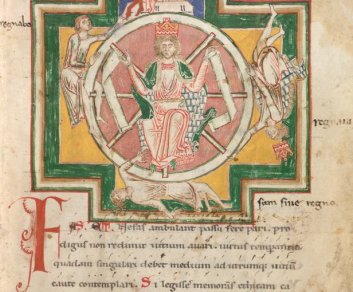 regnabo
regnaui
sum sine regno
FAS ET nefas ambulant passu fere pari. pro
digus non redimit uitium auari. uirtus temperantia
quadam singulari debet medium ad utrumq; uitiũ
caute contemplari. Si legisse memoras ethicam ca